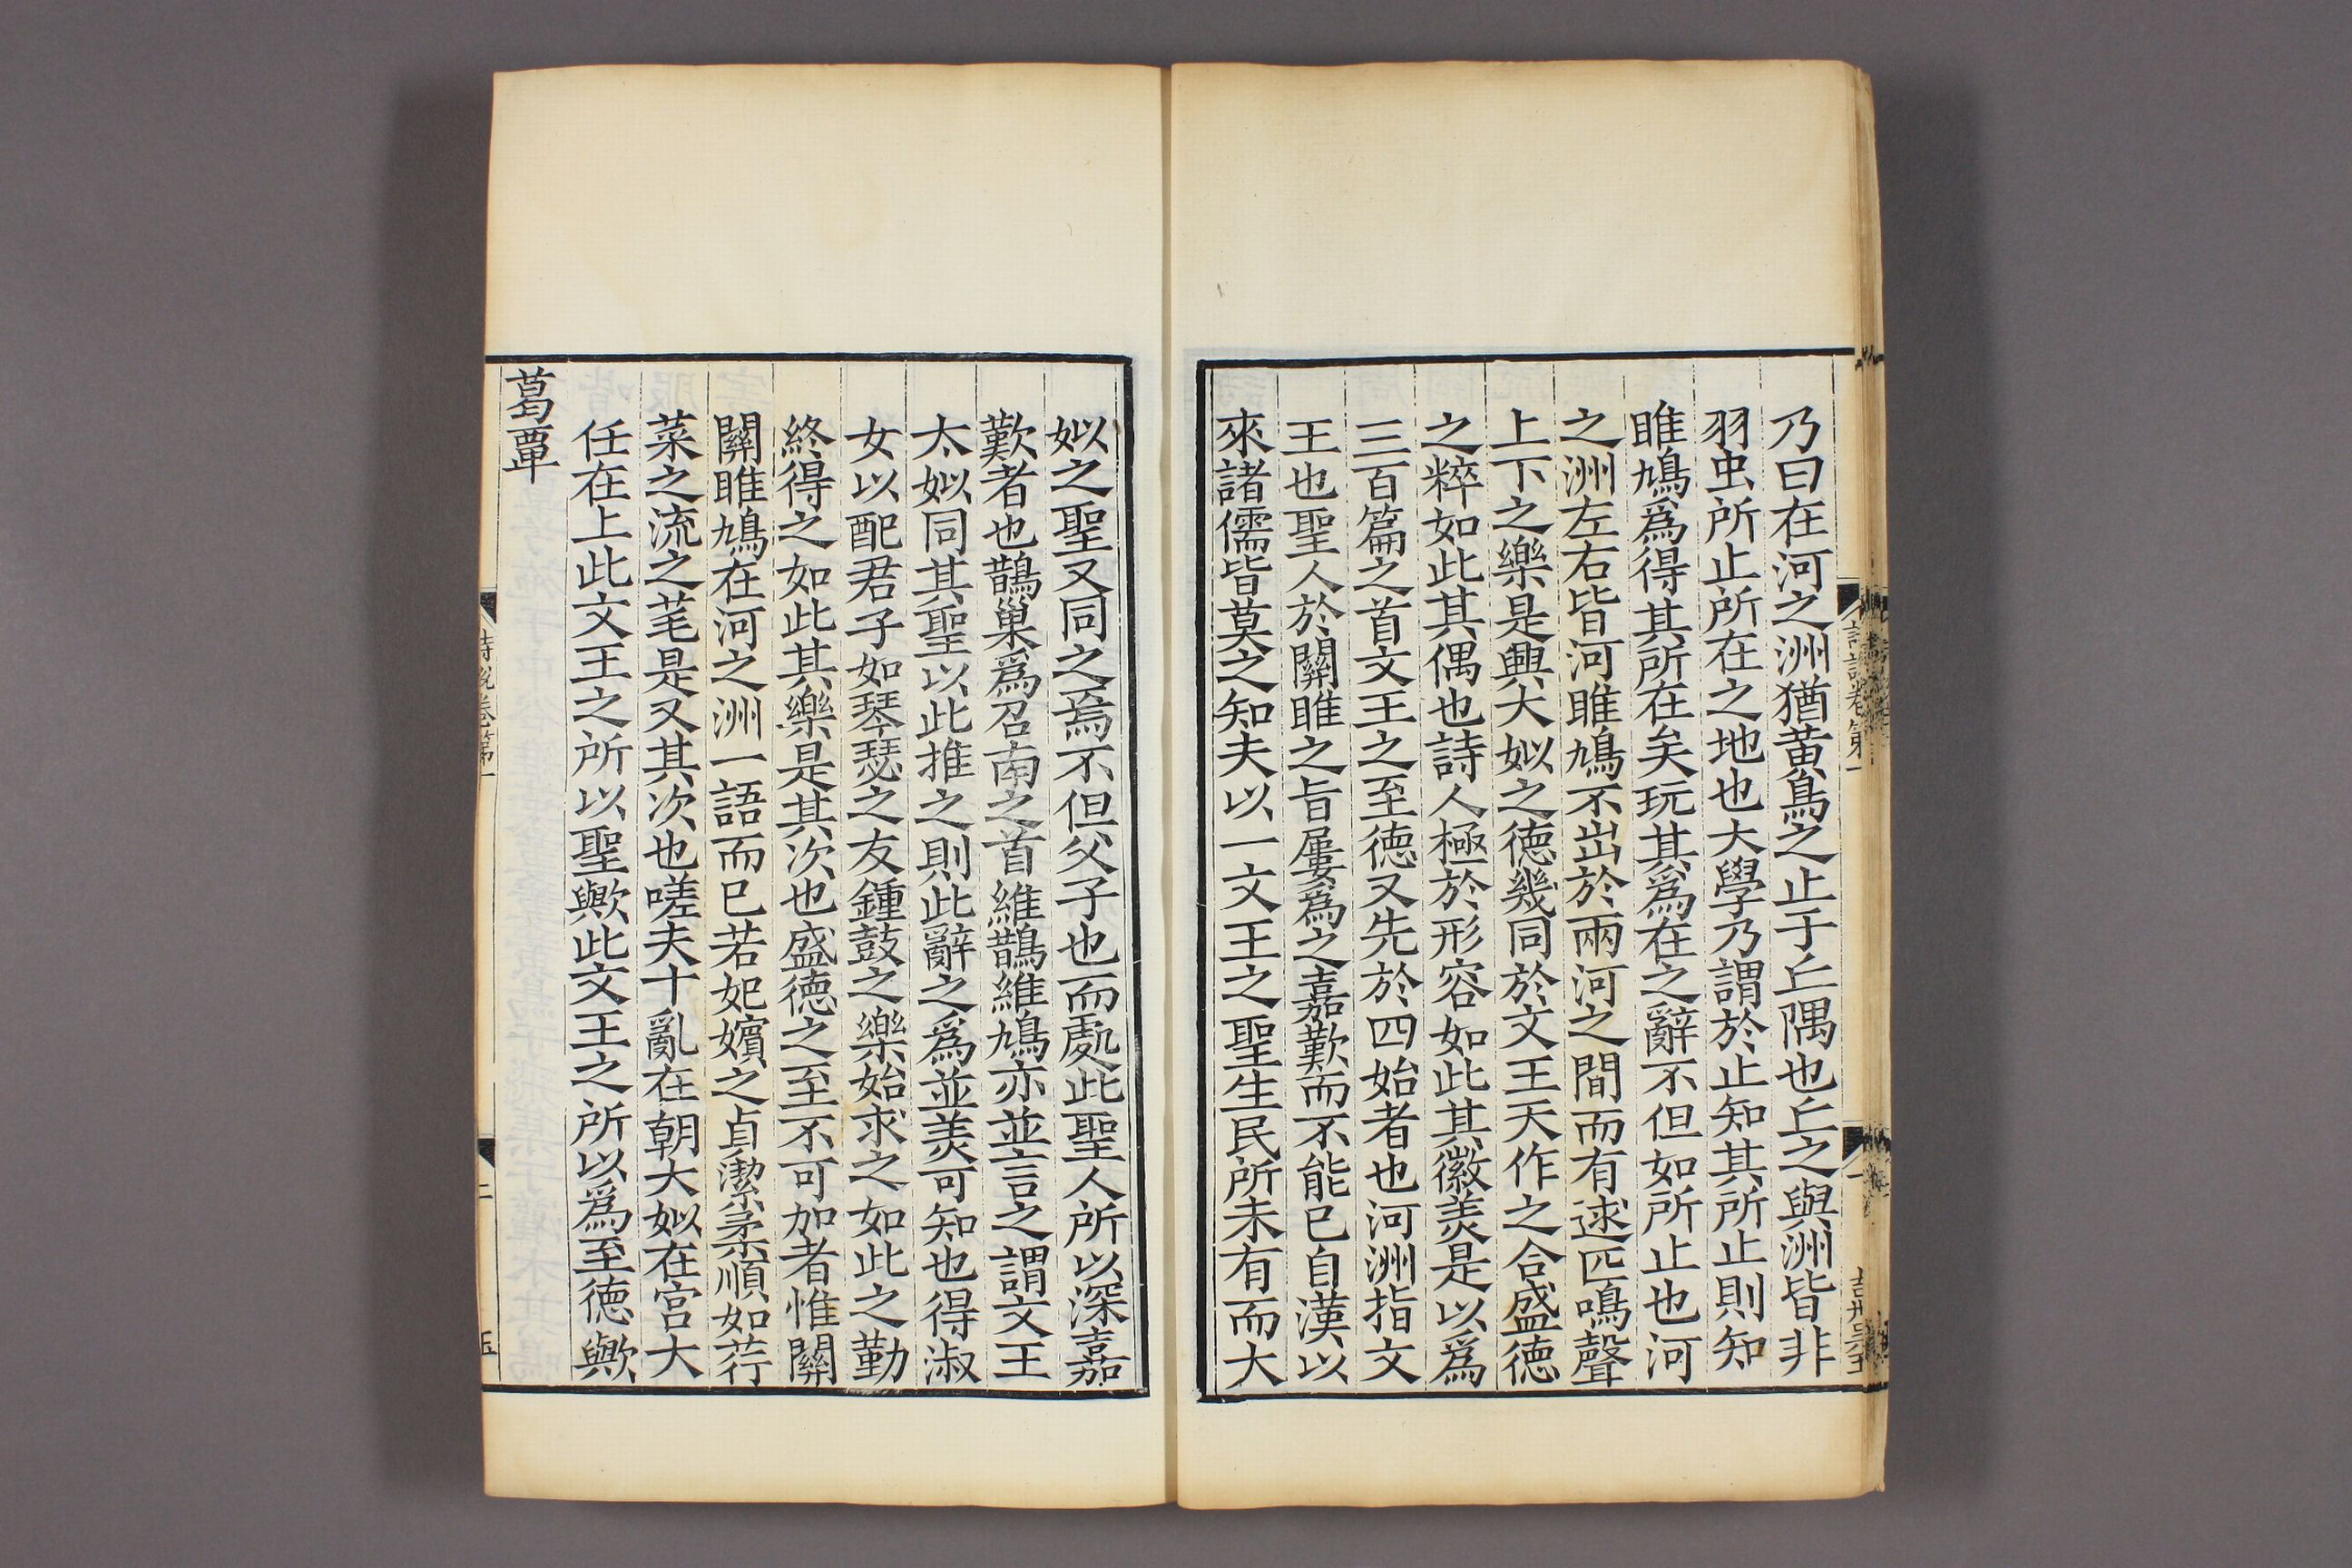 乃曰在河之洲猶黃鳥之止于丘隅也丘之與洲皆非
羽虫所止所在之地也大學乃謂於止知其所止則知
雎鳩爲得其所在矣玩其爲在之辭不但如所止也河
之洲左右皆河雎鳩不出於兩河之間而有逑匹鳴聲
上下之樂是興大姒之德幾同於文王天作之合盛德
之粹如此其偶也詩人極於形容如此其徽羙是以爲
三百篇之首文王之至德又先於四始者也河洲指文
王也聖人於關雎之旨屢爲之嘉歎而不能已自漢以
來諸儒皆莫之知夫以一文王之聖生民所未有而大
姒之聖又同之焉不但父子也而處此聖人所以深嘉
歎者也鵲巢爲召南之首維鵲維鳩亦並言之謂文王
太姒同其聖以此推之則此辭之爲並羙可知也得淑
女以配君子如琴瑟之友鍾鼓之樂始求之如此之勤
終得之如此其樂是其次也盛德之至不可加者惟關
關雎鳩在河之洲一語而已若妃嬪之貞潔柔順如荇
菜之流之芼是又其次也嗟夫十亂在朝大姒在宮大
任在上此文王之所以聖歟此文王之所以爲至德歟
葛覃
詩說卷第一
二
五